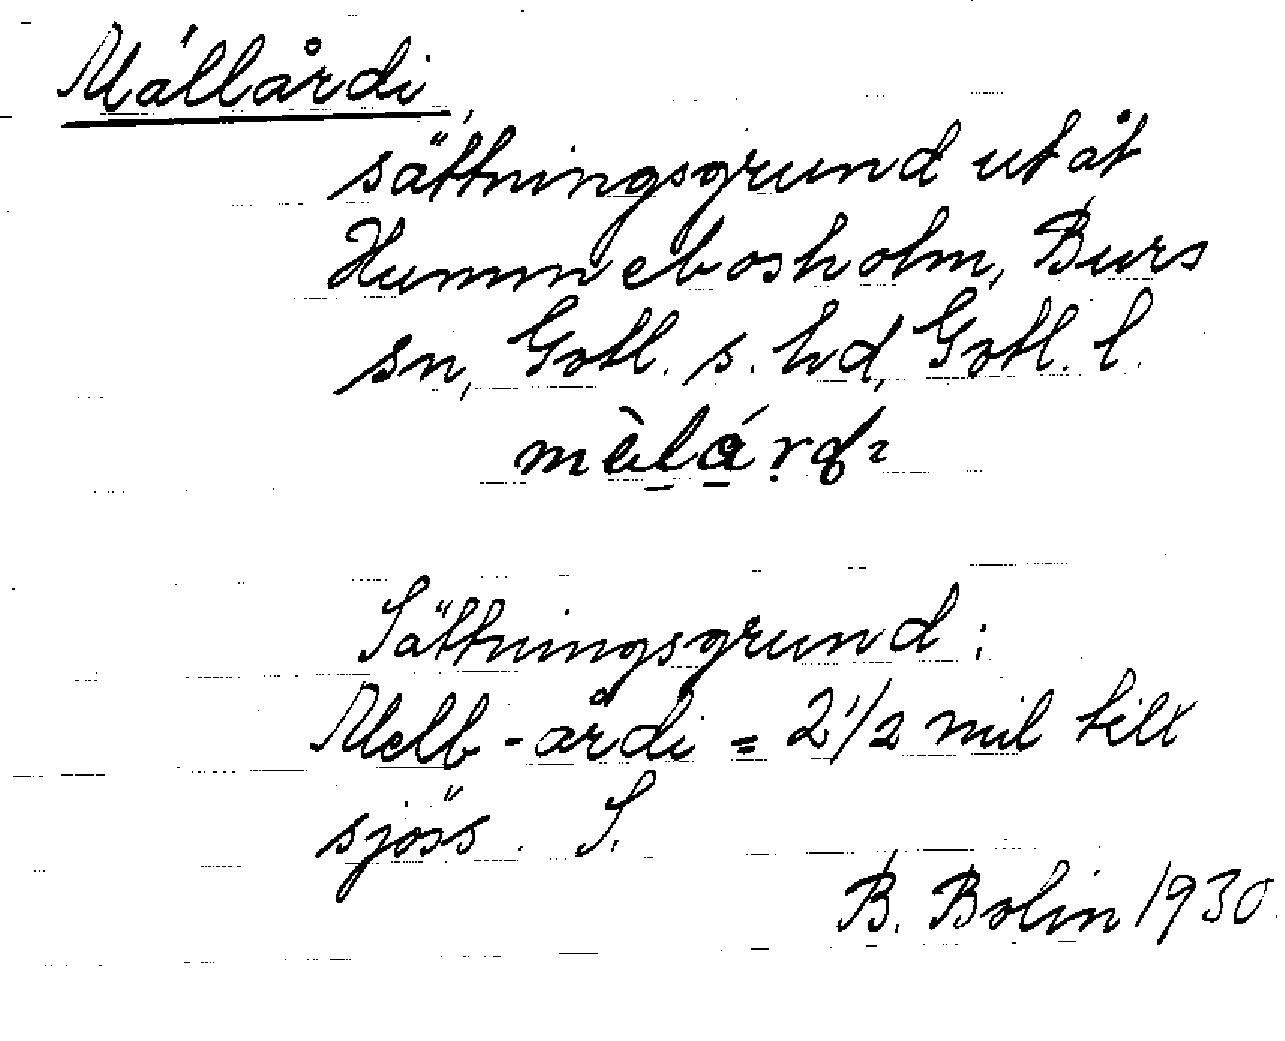 Mállårdi,
sättningsgrund ut åt
Hummebosholm, Burs
sn, Gotl. s. hd, Gotl. l.
Sättningsgrund:
Melb-årdi = 2 1/2 mil till
sjöss. S.
B. Bolin 1930.